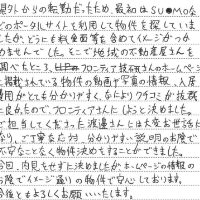 県外からの転勤だったため、最初はSU●MOな
どのポータルサイトを利用して物件を探していま
したが、どうにも料金面等を含めてイメージがつか
めませんでした。そこで地域の不動産屋さんを
調べたところ、フロンティア技研さんのホームページ
に掲載されている物件の動画や写真の情報、入居
費用がとても分かりやすく、なによりクチコミが抜群
に良かったので、フロンティアさんにしようと決めました。
ご担当してくださった渡邊さんには大変お世話に
なり、ご丁寧な対応、分かりやすい説明のお陰で
不安なことなく物件決めすることができました。
今回、内見をせずに決めましたがホームページの情報の
お陰でイメージ通りの物件で安心しております。
今後ともよろしくお願いいたします。